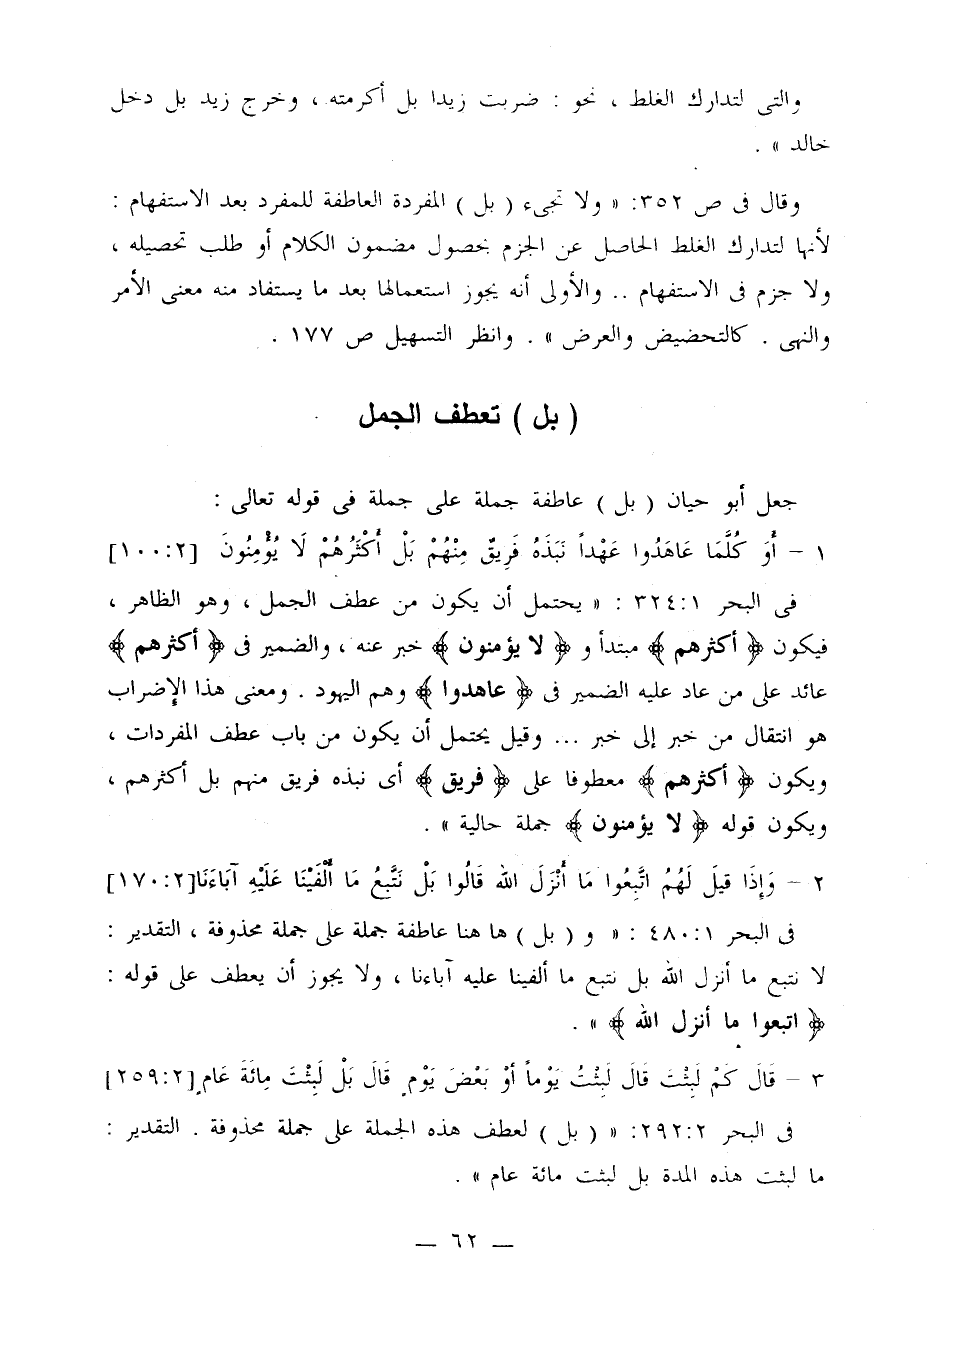 والتى لتدارك الغلط ، نحو : ضربت زيدا بل أكرمته ، وخرج زيد بل دخل
خالد » .
وقال فى ص ٣٥٢: « ولا تجىء ( بل ) المفردة العاطفة للمفرد بعد الاستفهام :
لأنها لتدارك الغلط الحاصل عن الجزم بحصول مضمون الكلام أو طلب تحصيله ،
ولا جزم فى الاستفهام .. والأولى أنه يجوز استعمالها بعد ما يستفاد منه معنى الأمر
والنهى . كالتحضيض والعرض » . وانظر التسهيل ص ١٧٧ .
( بل ) تعطف الجمل
جعل أبو حيان ( بل ) عاطفة جملة على جملة فى قوله تعالى :
١ - أَوَ كُلَّمَا عَاهَدُوا عَهْداً نَبَذَهُ فَرِيقٌ مِنْهُمْ بَلْ أَكْثَرُهُمْ لَا يُؤْمِنُونَ [١٠٠:٢]
فى البحر ٣٢٤:١ : « يحتمل أن يكون من عطف الجمل ، وهو الظاهر ،
فيكون ﴿ أكثرهم ﴾ مبتدأ و ﴿ لا يؤمنون ﴾ خبر عنه ، والضمير فى ﴿ أكثرهم ﴾
عائد على من عاد عليه الضمير فى ﴿ عاهدوا ﴾ وهم اليهود . ومعنى هذا الإضراب
هو انتقال من خبر إلى خبر ... وقيل يحتمل أن يكون من باب عطف المفردات ،
ويكون ﴿ أكثرهم ﴾ معطوفا على ﴿ فريق ﴾ أى نبذه فريق منهم بل أكثرهم ،
ويكون قوله ﴿ لا يؤمنون ﴾ جملة حالية » .
٢ - وَإِذَا قِيلَ لَهُمُ اتَّبِعُوا مَا أَنْزَلَ الله قَالُوا بَلْ نَتَّبِعُ مَا أَلْفَيْنَا عَلَيْهِ آبَاءَنَا[١٧٠:٢]
فى البحر ٤٨٠:١ : « و ( بل ) ها هنا عاطفة جملة على جملة محذوفة ، التقدير :
لا نتبع ما أنزل الله بل نتبع ما ألفينا عليه آباءنا ، ولا يجوز أن يعطف على قوله :
﴿ اتبعوا ما أنزل الله ﴾ » .
٣ - قَالَ كَمْ لَبِثْتَ قَالَ لَبِثْتُ يَوْماً أَوْ بَعْضَ يَوْمٍ قَالَ بَلْ لَبِثْتَ مِائَةَ عَامٍ[٢٥٩:٢]
فى البحر ٢٩٢:٢: « ( بل ) لعطف هذه الجملة على جملة محذوفة . التقدير :
ما لبثت هذه المدة بل لبثت مائة عام » .
— ٦٢ —